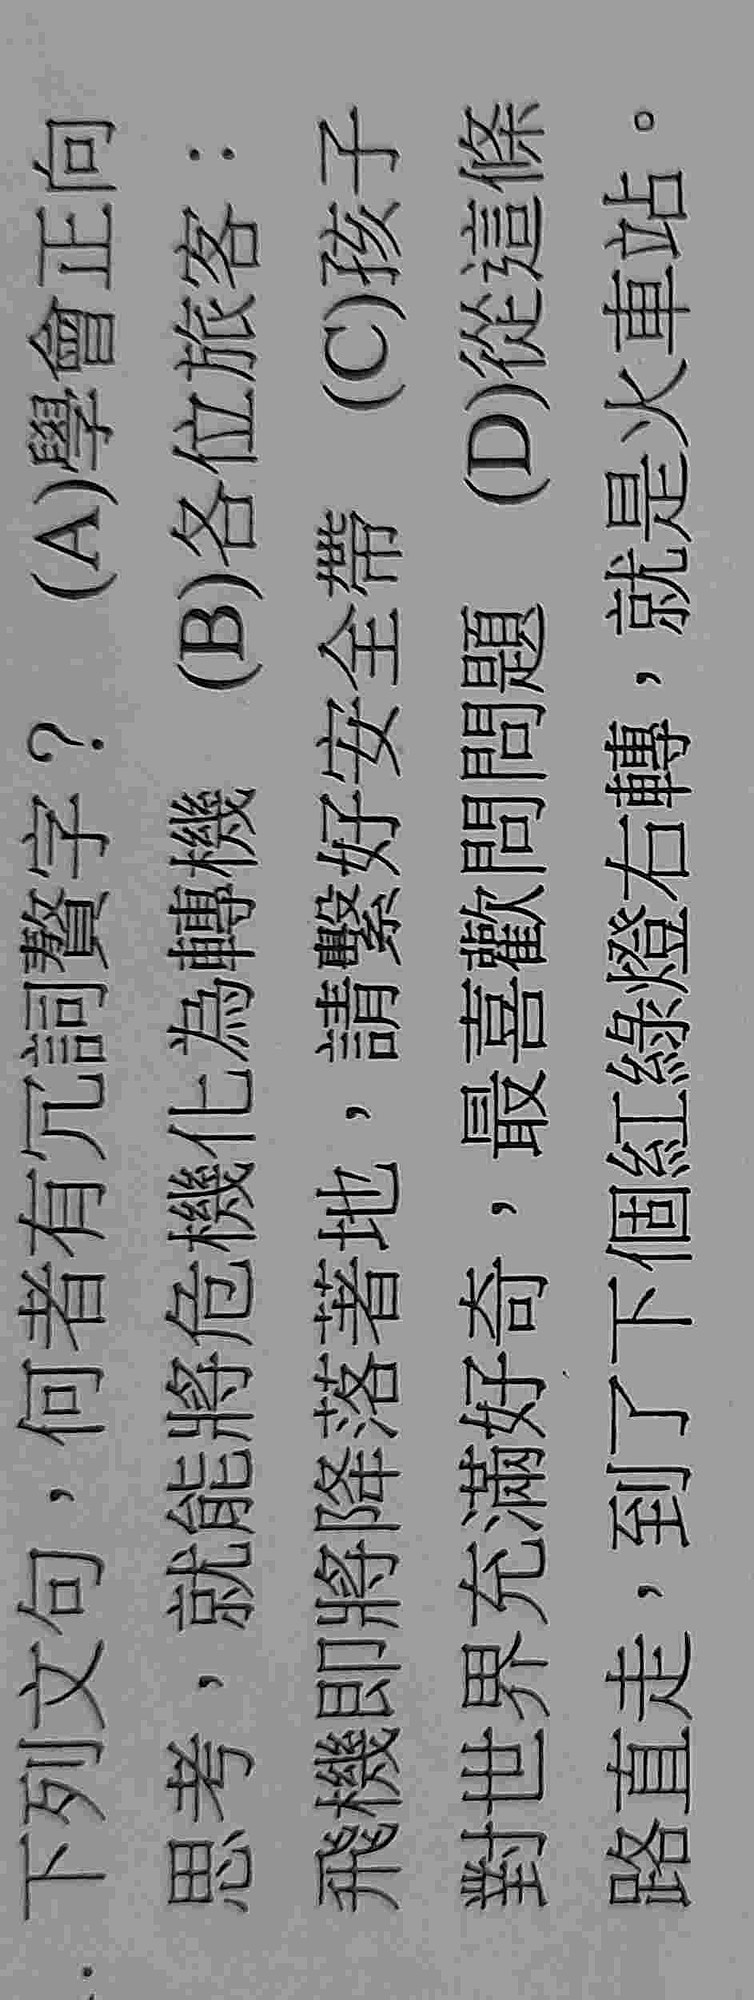 . 下列文句，何者有冗詞贅字？　(A)學會正向
思考，就能將危機化為轉機　(B)各位旅客：
飛機即將降落著地，請繫好安全帶　(C)孩子
對世界充滿好奇，最喜歡問問題　(D)從這條
路直走，到了下個紅綠燈右轉，就是火車站。